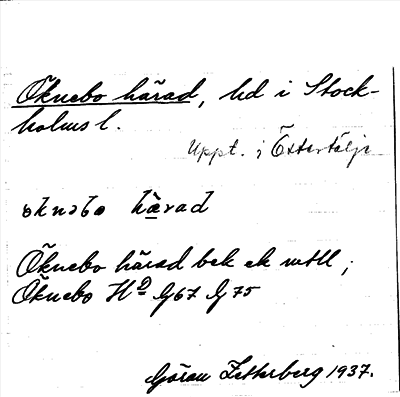 Öknebo härad, hd i Stock-
holms l.
Uppt. i Östertälje
öknəbo hærad
Öknebo härad bek ek mtll;
Öknebo Hd G67 G75
Göran Zetterberg 1937.